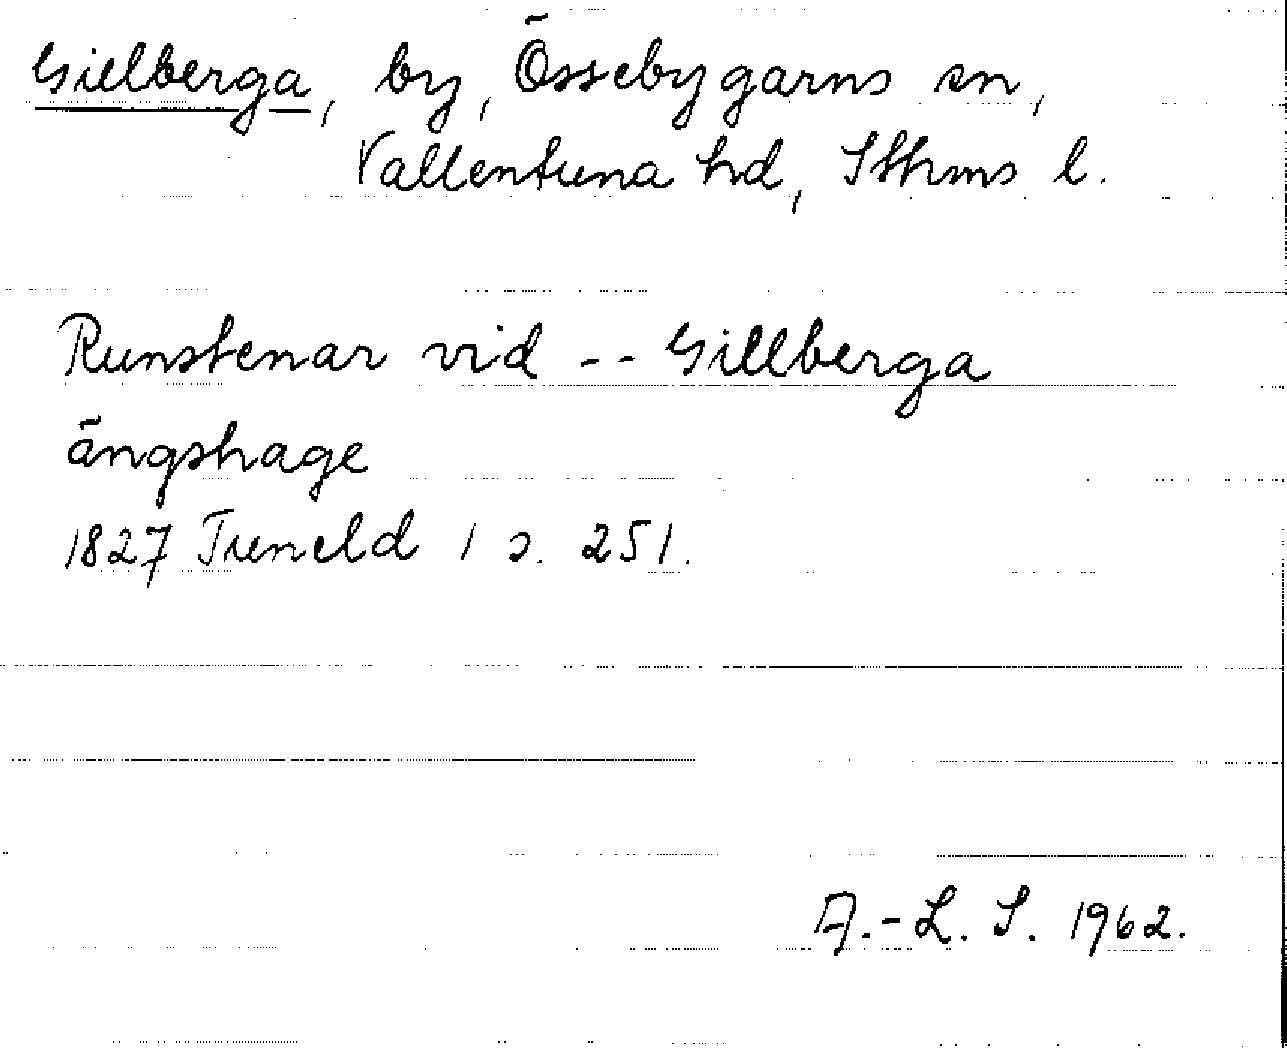 Gillberga, by, Össebygarns sn,
Vallentuna hd, Sthms l.
Runstenar vid -- Gillberga
ängshage
1827 Tuneld 1 s. 251.
A.-L. S. 1962.